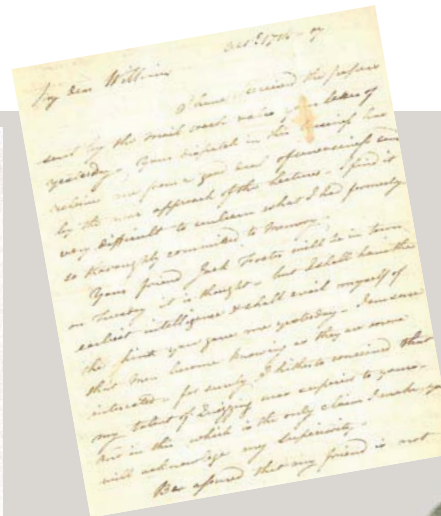 my dear William
I have received the papers
sent by the mail coach
yesterday. Your dispatch in this business has
relieved me from a good deal of uneasiness
by the near approach of the Lectures. I find it
very difficult to unlearn what I had formerly
so thoroughly committed to
Your friend Jack Foster will be in town
on Tuesday it is thought - but I shall have the
earliest intelligence & shall avail myself of
the hint you gave me yesterday. I am sure
that men become knowing as they are more
interested - for surely I hitherto conceived that
my talent of was superior to yours.
this which is the only claim I make, you
will acknowledge my superiority.
Be assured that my friend is not